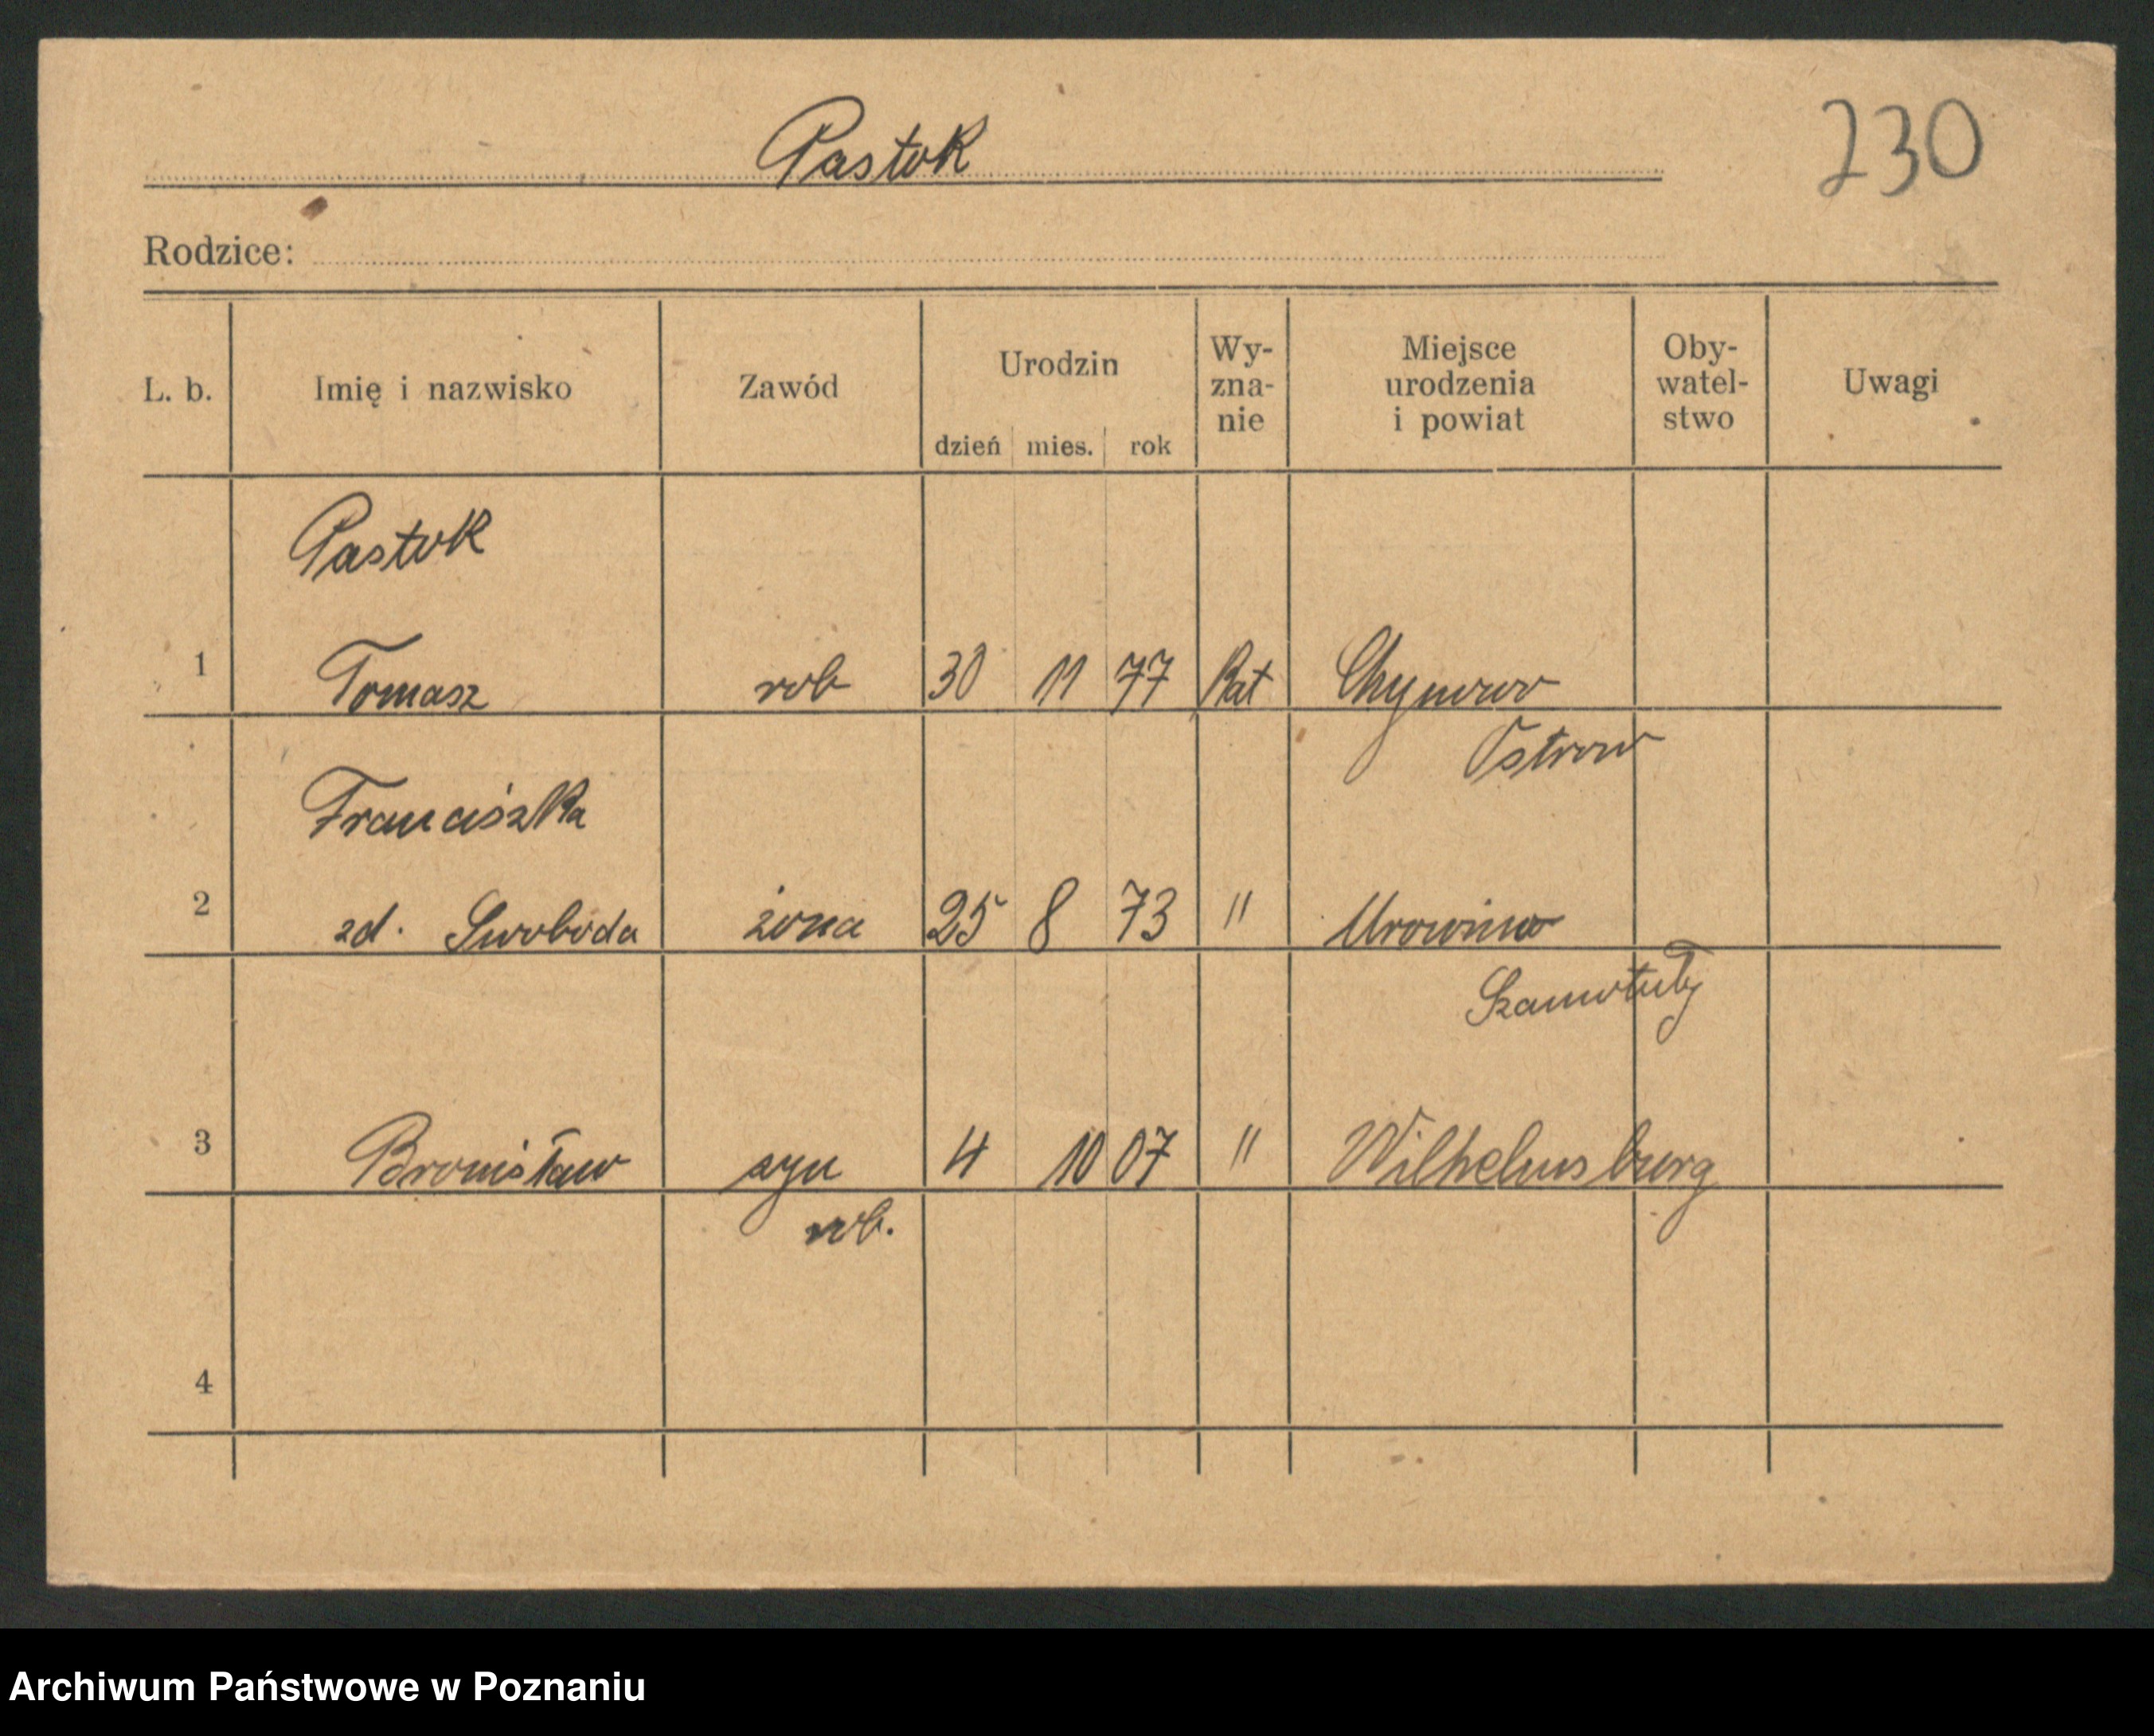 Pastok
230
Rodzice:
L. b. Imię i nazwisko Zawód Urodzin dzień mies. rok Wy-zna-nie Miejsce urodzenia i powiat Oby-watel-stwo Uwagi
Pastok
1 Tomasz rob 30 11 77 Kat Chynowo
Ostrow
Franciszka
2 zd. Swoboda żona 25 8 73 "
Szamotuły
3 Bronisław syn 4 10 07 " Wilhelmsburg
rob.
4
Archiwum Państwowe w Poznaniu